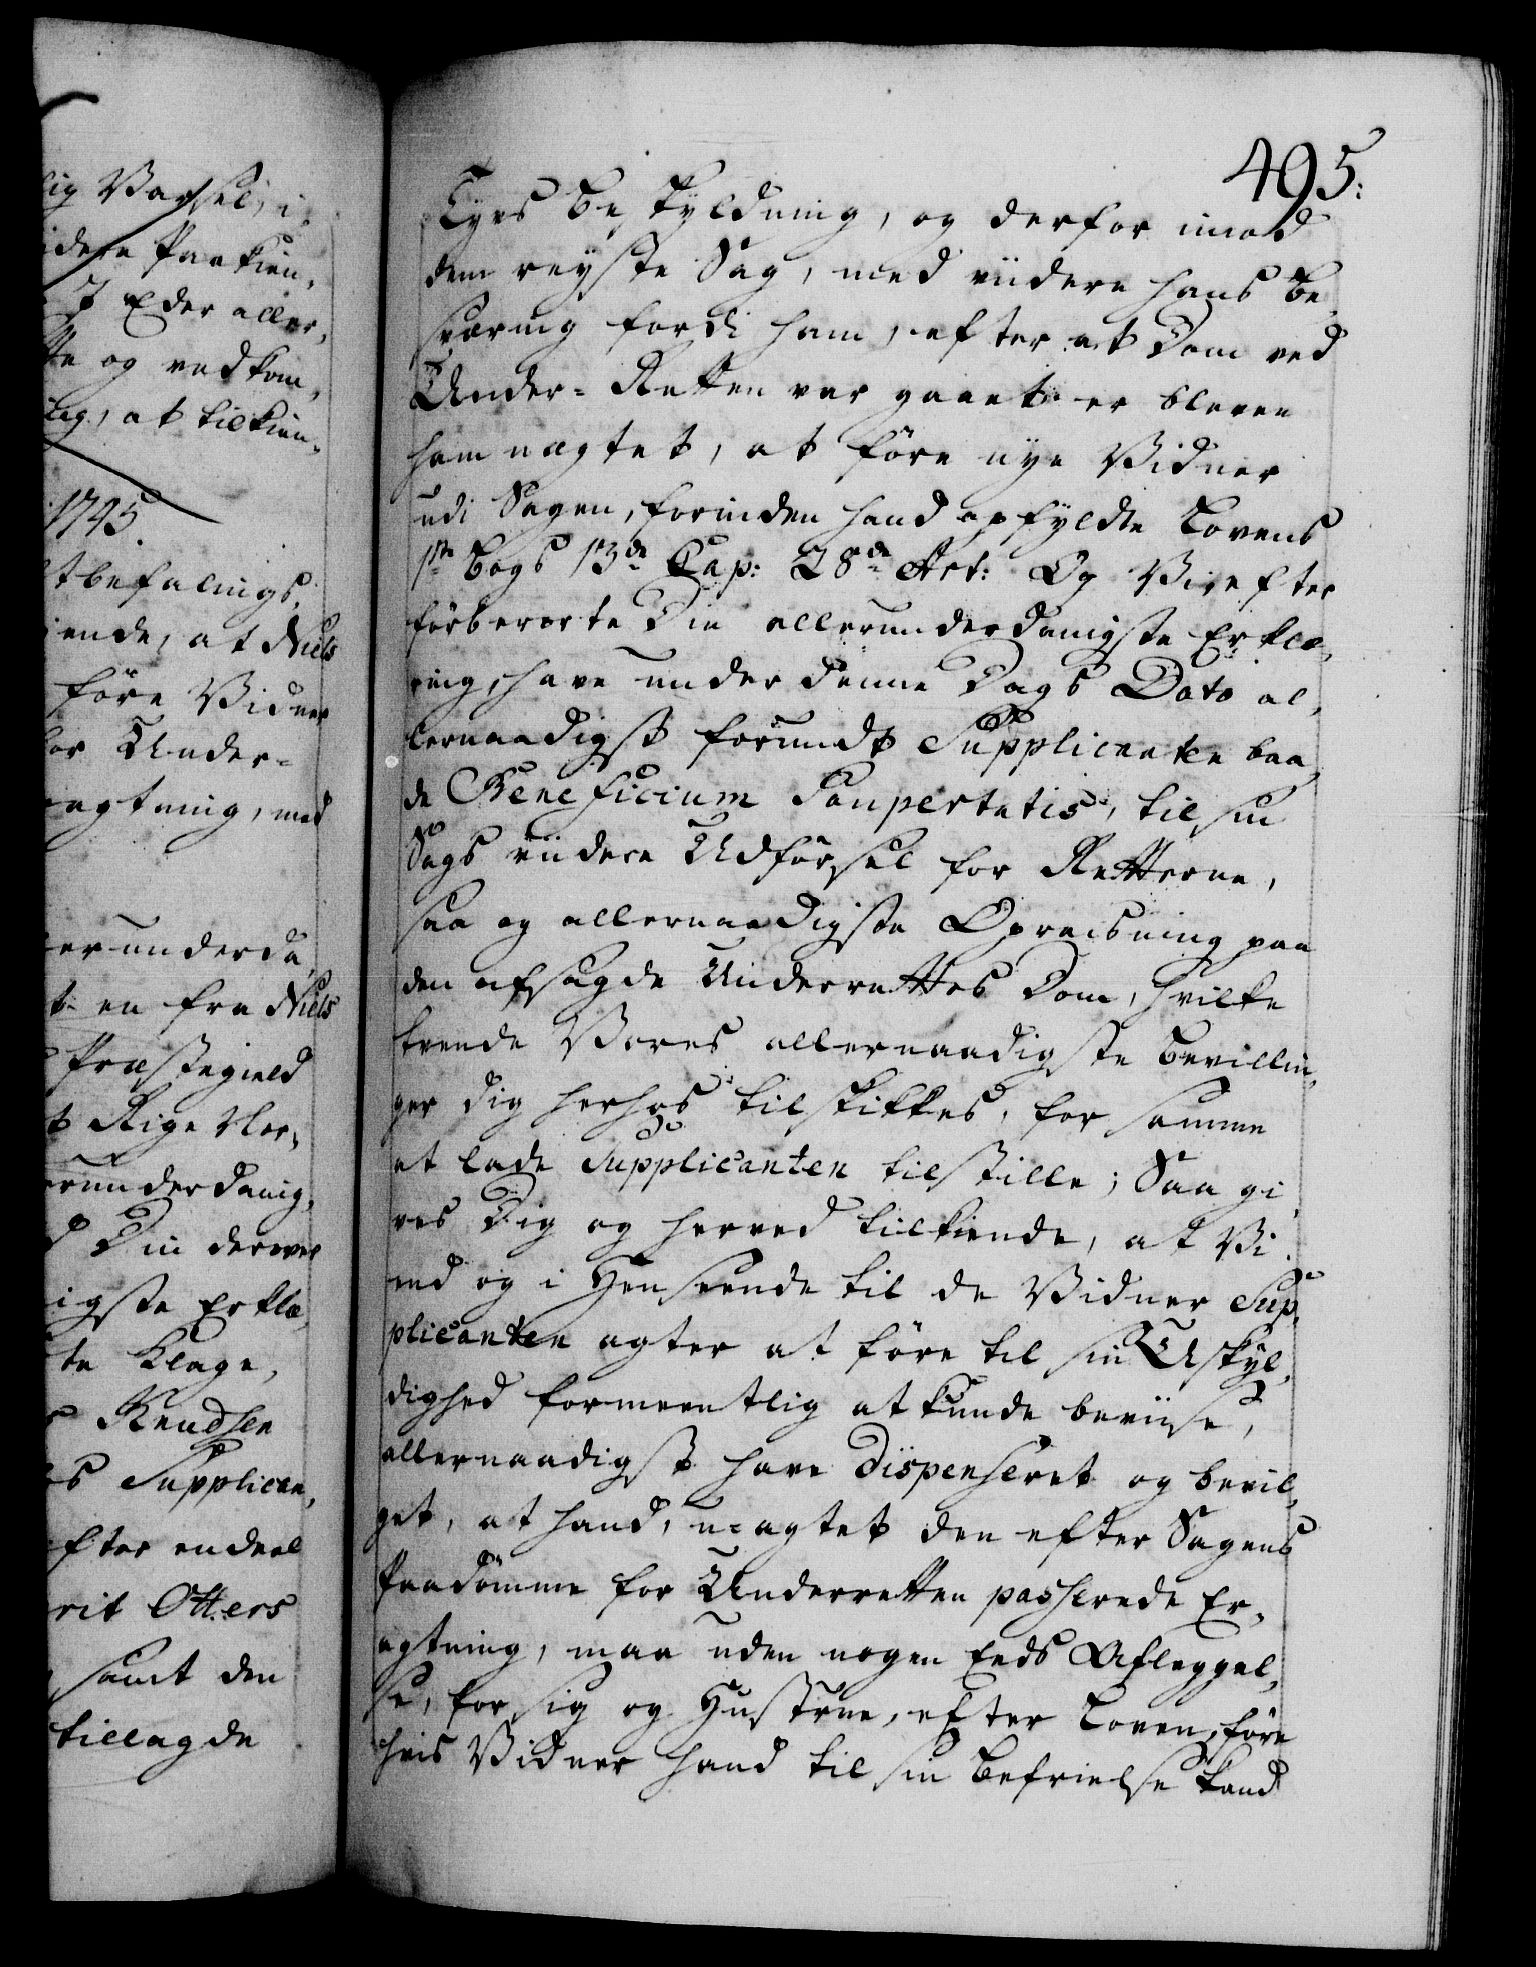 lig Varsel, i
videre Paakien,
I Eder aller,
te og vedkom,
lig, at tilkien-
1745.
tbefalings,
iende, at Niels
føre Vidner
for Under-
agtning, med
erunderda,
t en fra Niels
Præstegield
t Rige Nor,
erunderdanig,
d Din derover
igste Erklæ,
te Klage,
Knudsen
s Supplican,
efter endeel
rit Otters
samt den
tillagde
495:
Tyvs beskyldning, og derfor imod
dem reyste Sag, med viidere hans be,
sværing fordi ham, efter at Dom ved
Under-Retten var gaaet er bleven
ham nægtet, at føre nye Vidner
udi Sagen, forinden hand opfyldte Lovens
1ste bogs 13de Cap: 28de Art: Og Vi, efter
forberørte Din allerunderdanigste Erklæ,
ring, have under Denne Dags Dato al,
lernaadigst forundt Supplicanten baa,
de Beneficium Paupertatis, til sin
Sags viidere Udførsel for Retterne,
saa og allernaadigste Opreisning paa
den afsagde Underrettes Dom, hvilke
tvende Vores allernaadigste bevillin,
ger dig herhos tilskikkes, for samme
at lade Supplicanten tilstille; Saa gi,
ves Dig og herved tilkiende, at Vi
end og i Henseende til de Vidner Sup,
plicanten agter at føre til sin Uskyl,
dighed formeentlig at kunde beviise,
allernaadigst have dispenseret og bevil,
get, at hand, uagtet den efter Sagens
Paadømme for Underretten passerede Er,
agtning, maa uden nogen Eeds Aflæggel,
se, for sig og Hustrue, efter Loven, føre
hvis Vidner hand til sin befrielse kand